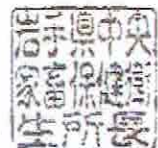 岩手県中央
家畜保健衛
生所長